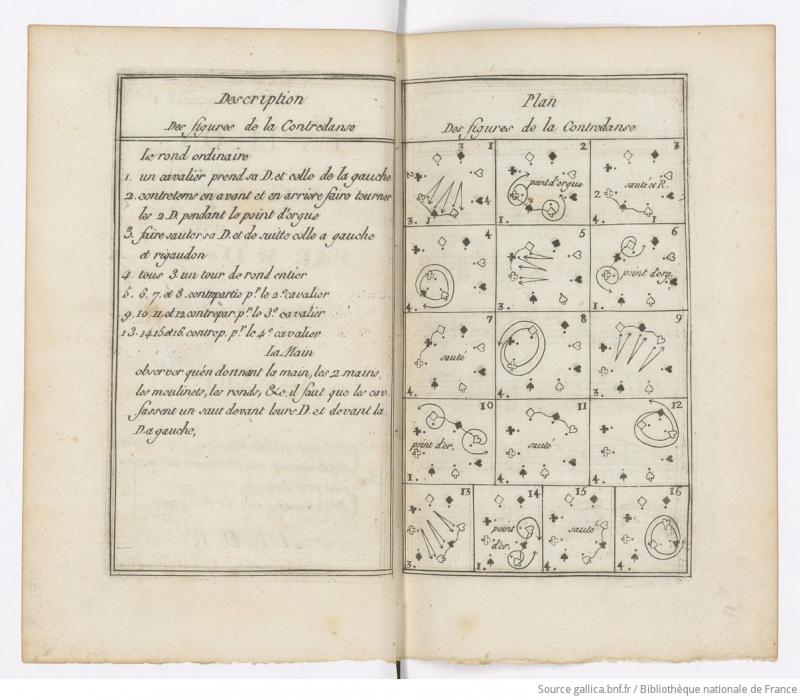 Description
Des figures de la Contredanse
Le rond ordinaire
1. un cavalier prend sa D. et celle de la gauche
2. contretems en avant et en arriere faire tourner
les 2 D. pendant le point d'orgue
3. faire sauter sa D. et de suitte celle a gauche
et rigaudon
4. tous 3 un tour de rond entier
5. 6. 7. et 8. contrepartie pr. le 2e. cavalier
9. 10 11. et 12 contrepar. pr. le 3e. cavalier
13. 14 15 et 16. contrep. pr. le 4e. cavalier
La Main
observer qu'en donnant la main, les 2 mains,
les moulinets, les ronds, &c, il faut que les cav.
fassent un saut devant leurs D. et devant la
D a gauche,
Plan
Des figures de la Contredanse
3 1
2 4
3. 1
2
point d'orgue
1.
3
sauté et R.
2
4. 1
4
4.
5
3.
6
point d'org.
1.
7
sauté
4.
8
4.
9
3.
10
point d'or.
1.
11
sauté
4.
12
4.
13
3.
14
point
d'or.
1.
15
sauté
4.
16
4.
Source gallica.bnf.fr / Bibliothèque nationale de France